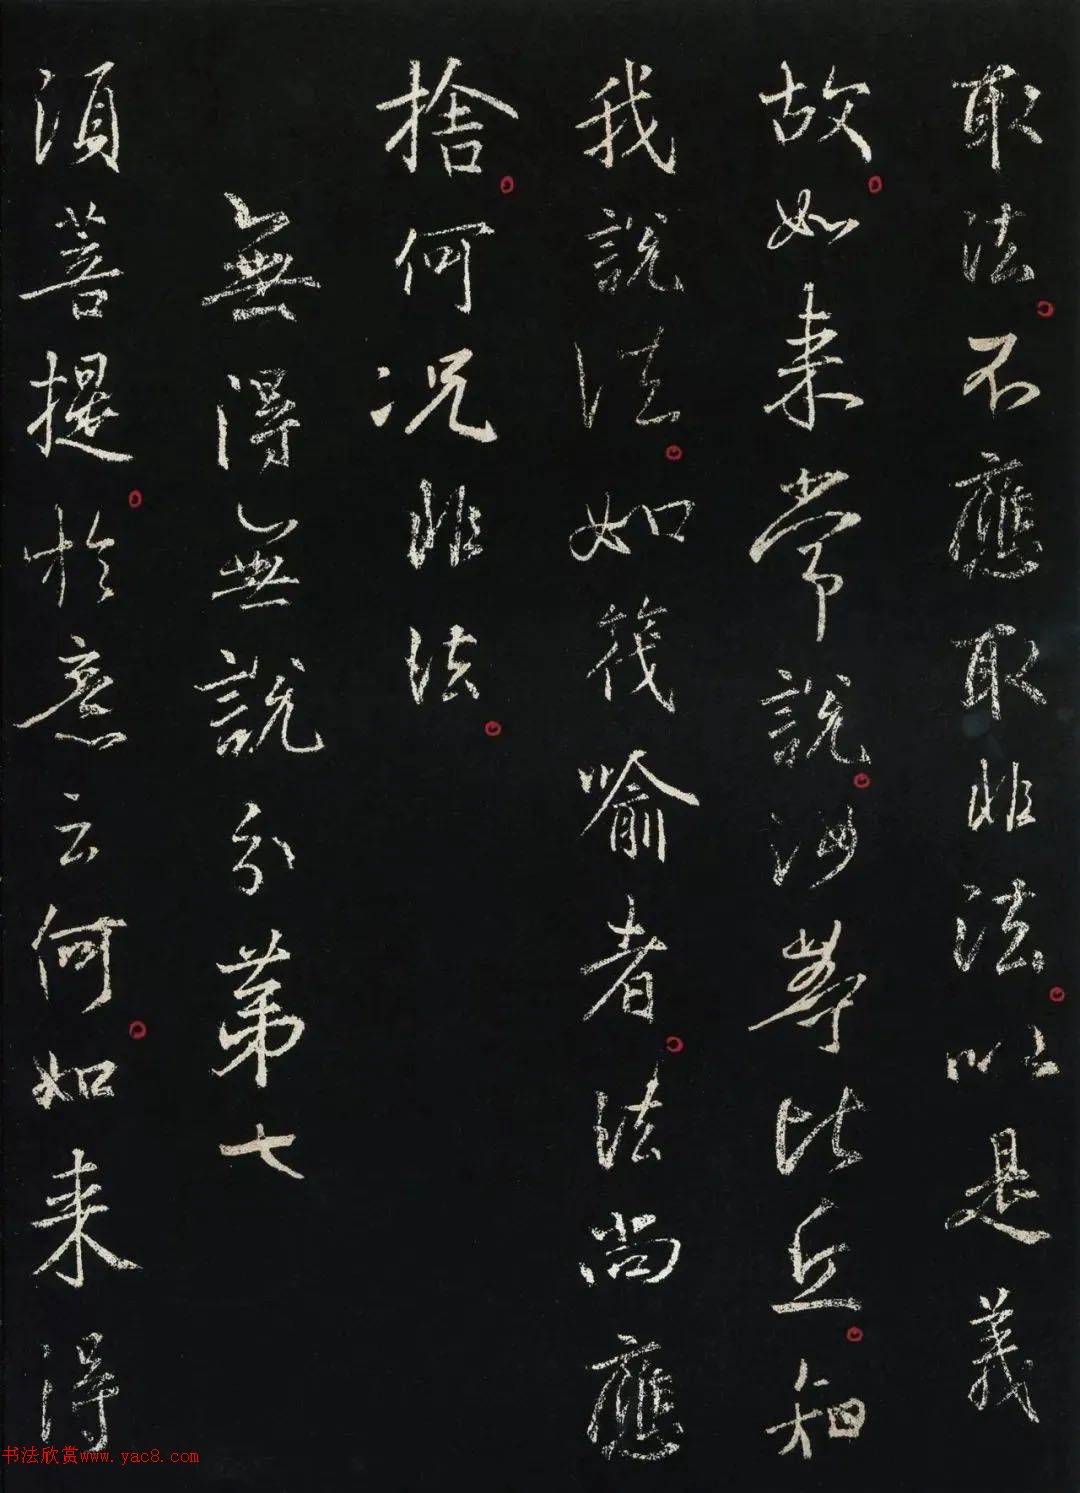 取法。不應取非法。以是義
故。如来常説。汝等比丘。知
我説法。如筏喻者。法尚應
捨。何况非法。
無得無説分第七
須菩提。於意云何。如来得
书法欣赏www.yac8.com